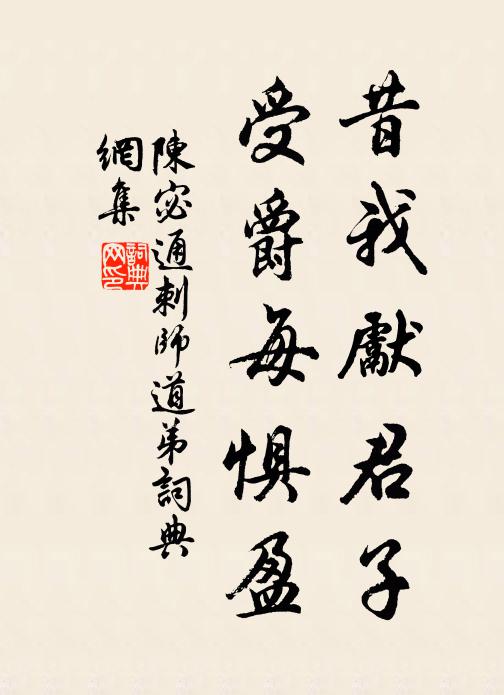 昔我獻君子
受爵每惧盈
陳宓通刺師道弟詞典
網集
詞典
网印